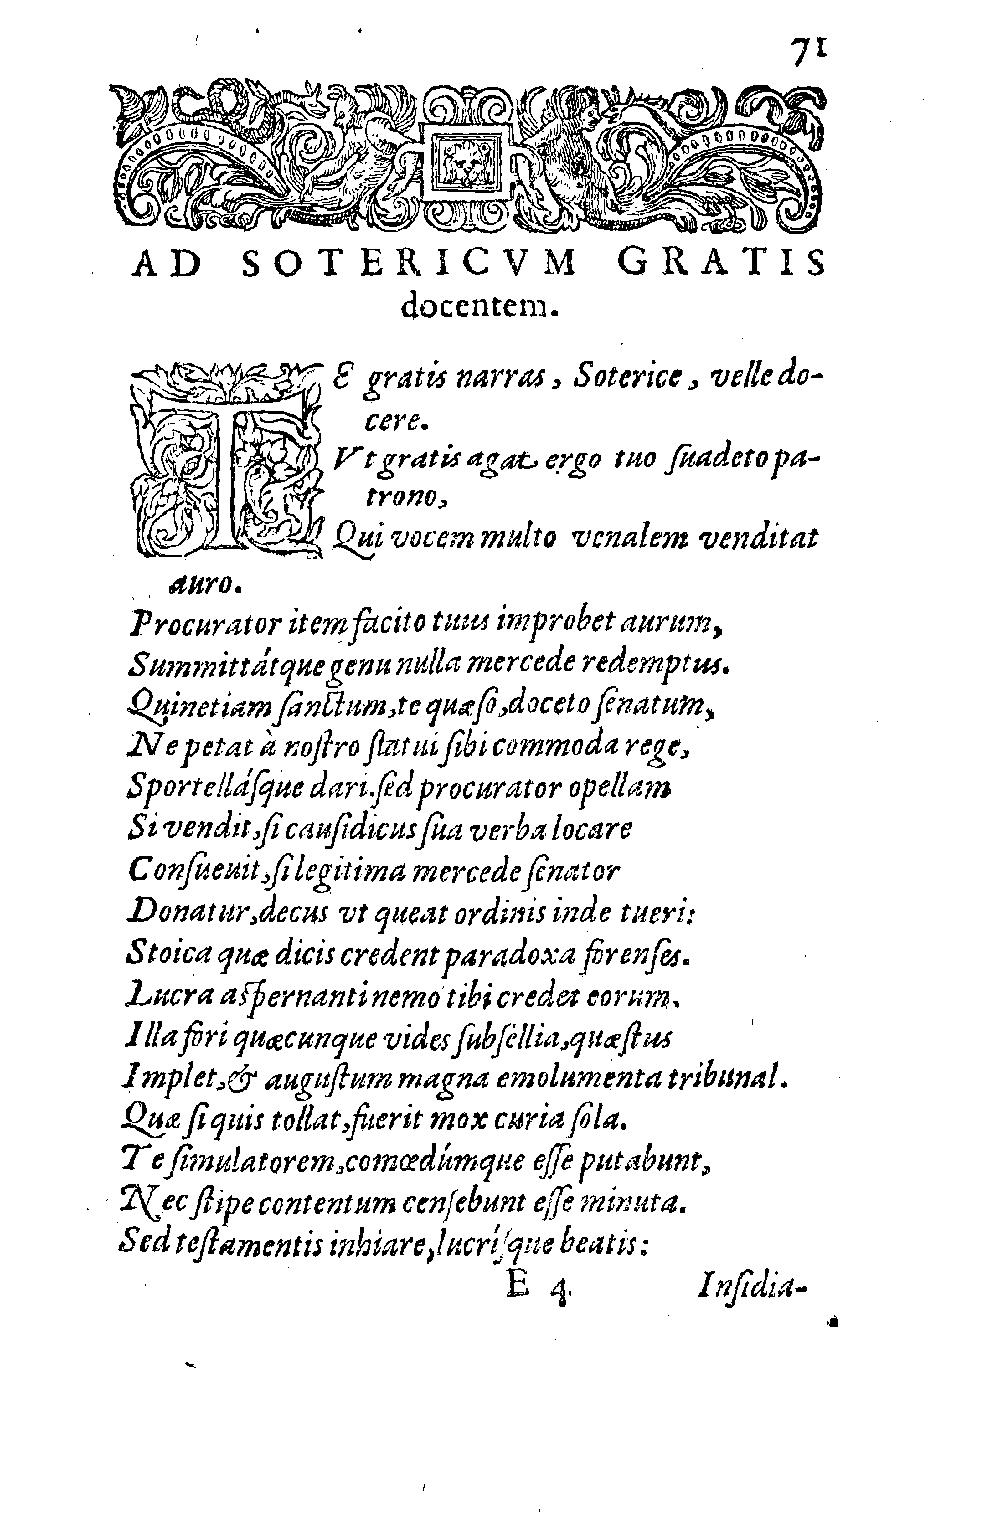 71
AD SOTERICVM GRATIS
docentem.
TE gratis narras, Soterice, velle do-
cere.
Vt gratis agat ergo tuo ſuadeto pa-
trono,
Qui vocem multo venalem venditat
auro.
Procurator item facito tuus improbet aurum,
Summittátque genu nulla mercede redemptus.
Quinetiam ſanctum, te quæſo, doceto ſenatum,
Ne petat à noſtro ſtatui ſibi commoda rege,
Sportelláſque dari. ſed procurator opellam
Si vendit, ſi cauſidicus ſua verba locare
Conſueuit, ſi legitima mercede ſenator
Donatur, decus vt queat ordinis inde tueri:
Stoica quæ dicis credent paradoxa forenſes.
Lucra aſpernanti nemo tibi credet eorum.
Illa fori quæcunque vides ſubſellia, quæſtus
Implet, & auguſtum magna emolumenta tribunal.
Quæ ſi quis tollat, fuerit mox curia ſola.
Te ſimulatorem, comœdúmque eſſe putabunt,
Nec ſtipe contentum cenſebunt eſſe minuta.
Sed teſtamentis inhiare, lucríſque beatis:
E 4. Inſidia-